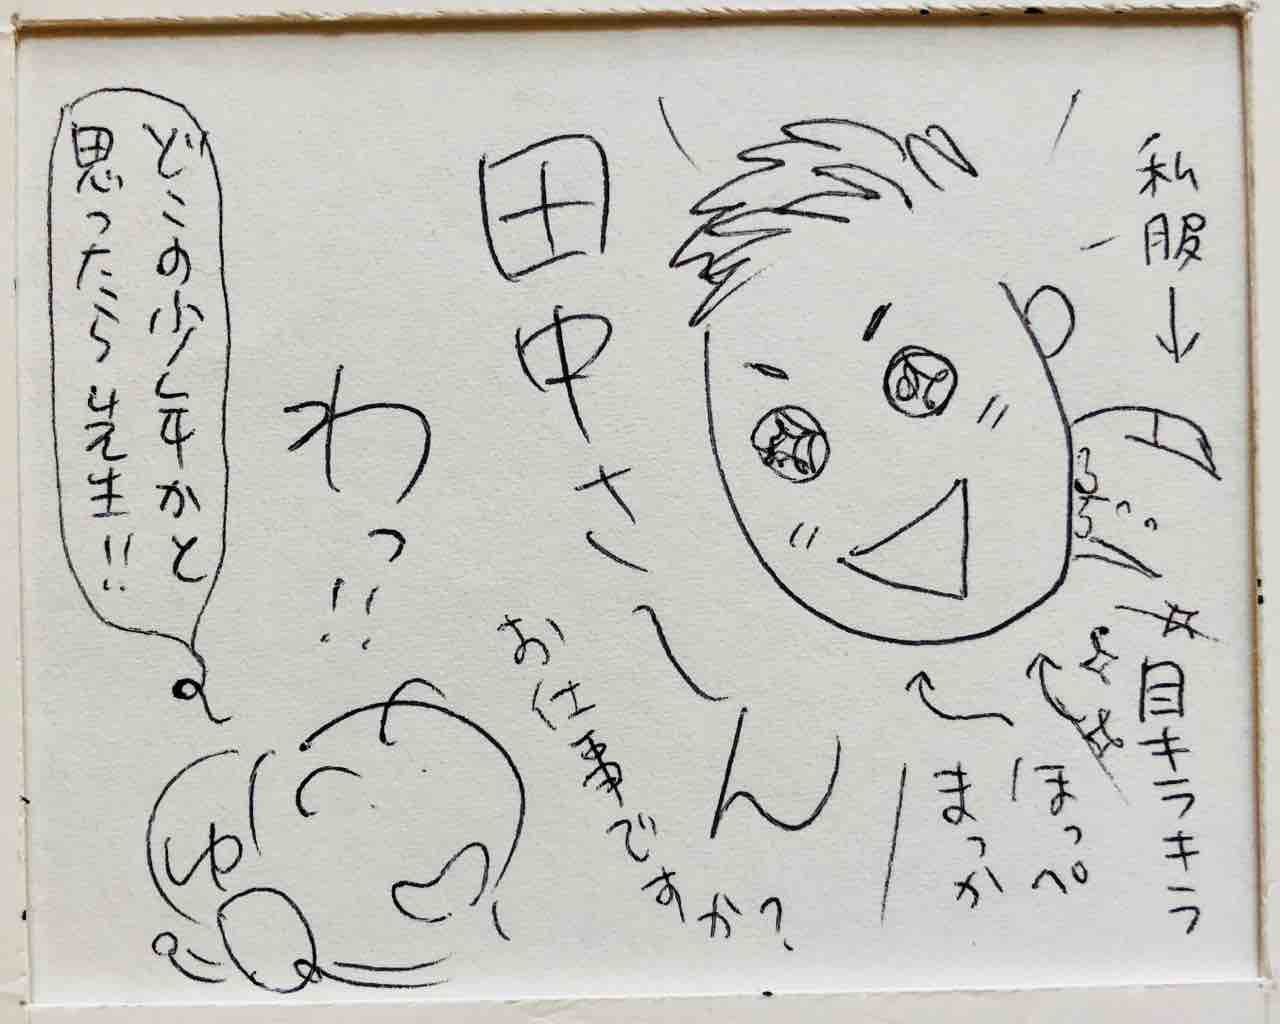 私服
目キラキラ
ほっぺ
まっか
田中さーん
お仕事ですか?
わっ!!
どこの少年かと
思ったら先生!!
ゆ